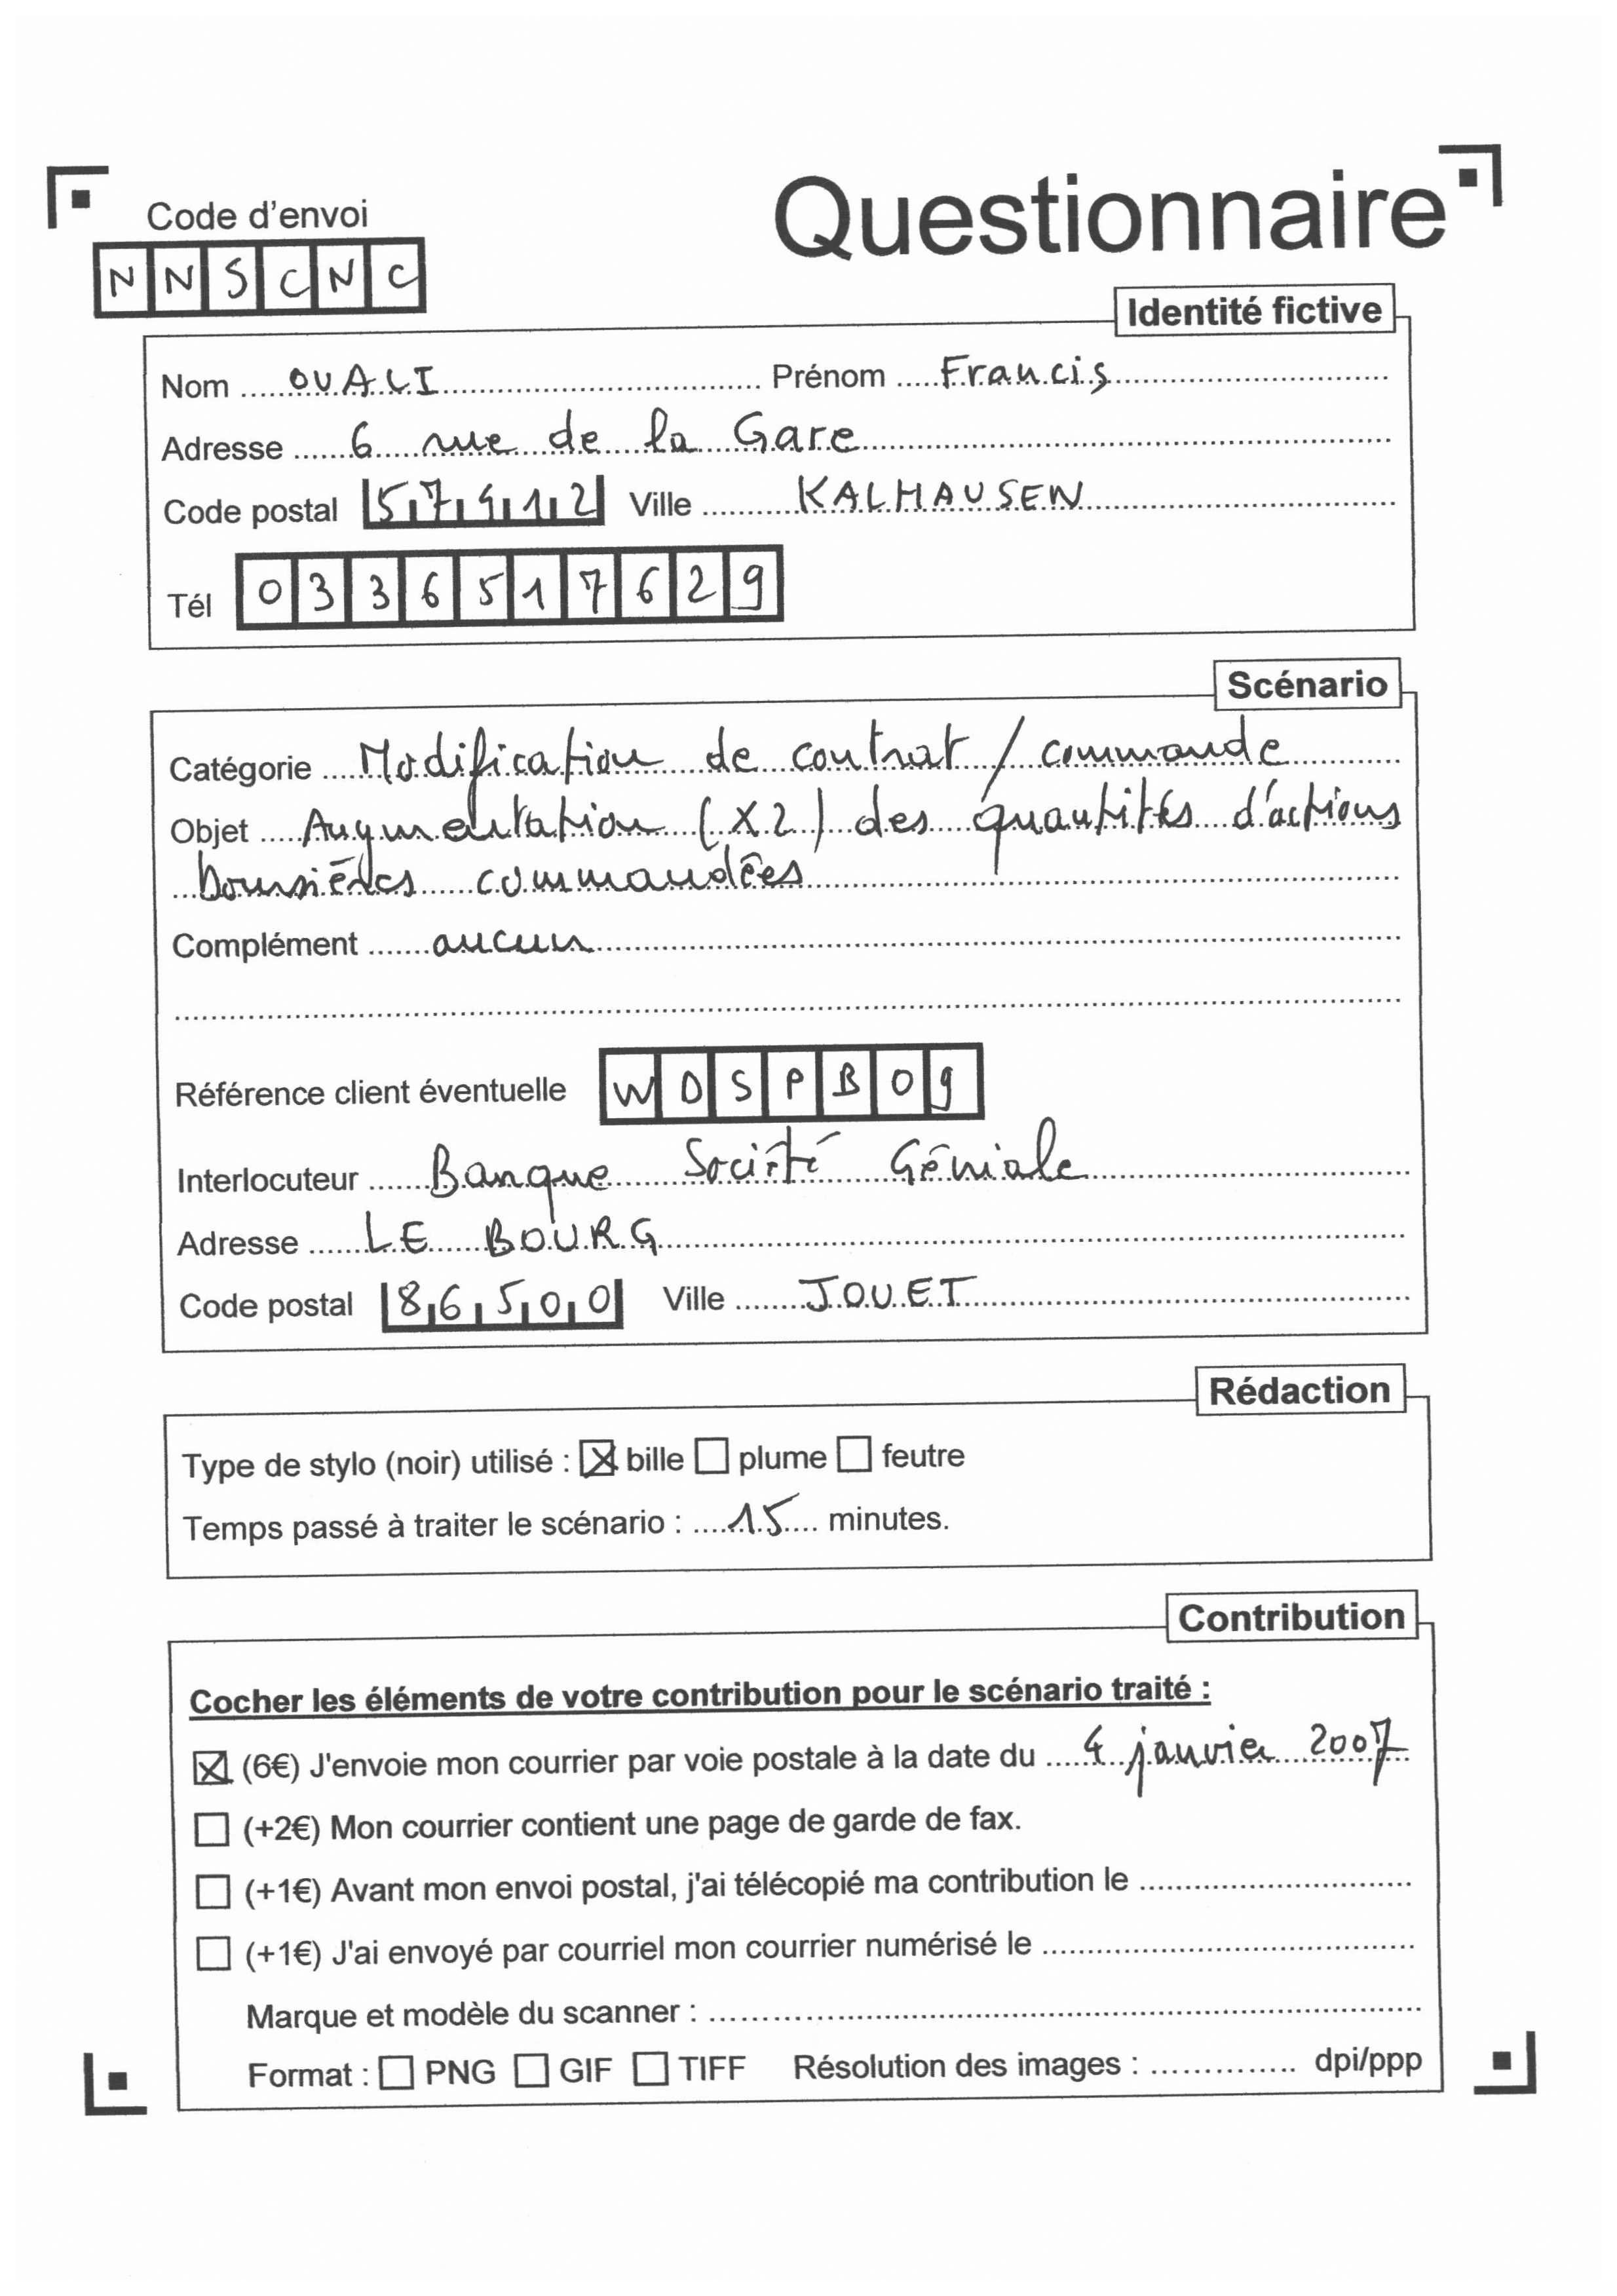 Questionnaire
Code d'envoi
NNSCNC
Identité fictive
Nom OUALI Prénom Francis
Adresse 6 rue de la Gare
Code postal 57412 Ville KALHAUSEN
Tél 0336517629
Scénario
Catégorie Modification de contrat / commande
Objet Augmentation (X2) des quantités d'actions
boursières commandées
Complément aucun
Référence client éventuelle WDSPB09
Interlocuteur Banque Société Géniale
Adresse LE BOURG
Code postal 86500 Ville JOUET
Rédaction
Type de stylo (noir) utilisé : ☒ bille ☐ plume ☐ feutre
Temps passé à traiter le scénario : 15 minutes.
Contribution
Cocher les éléments de votre contribution pour le scénario traité :
☒ (6€) J'envoie mon courrier par voie postale à la date du 4 janvier 2007
☐ (+2€) Mon courrier contient une page de garde de fax.
☐ (+1€) Avant mon envoi postal, j'ai télécopié ma contribution le
☐ (+1€) J'ai envoyé par courriel mon courrier numérisé le
Marque et modèle du scanner :
Format : ☐ PNG ☐ GIF ☐ TIFF Résolution des images : dpi/ppp